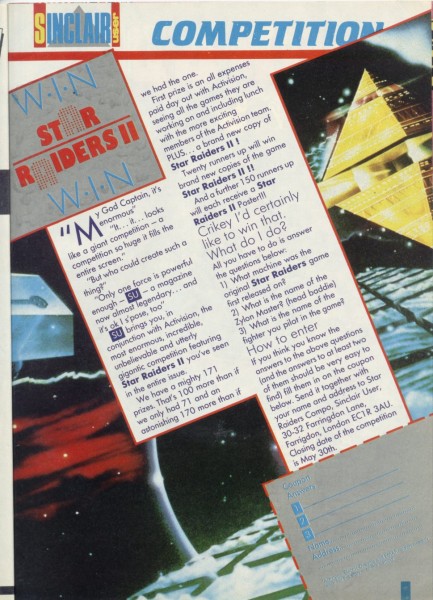 SINCLAIR user
COMPETITION
W·I·N
STAR
RAIDERS II
W·I·N
"My God Captain, it's
enormous"
"It... it... looks
like a giant competition – a
competition so huge it fills the
entire screen."
"But who could create such a
thing?"
"Only one force is powerful
enough – SU – a magazine
now almost legendary... and
it's ok I s'pose, too"
SU brings you, in
conjunction with Activision, the
most enormous, incredible,
unbelievable and utterly
gigantic competition featuring
Star Raiders II you've seen
in the entire issue.
We have a mighty 171
prizes. That's 100 more than if
we only had 71 and an
astonishing 170 more than if
we had the one.
First prize is an all expenses
paid day out with Activision,
seeing all the games they are
working on and including lunch
with the more exciting
members of the Activision team.
PLUS... a brand new copy of
Star Raiders II !
Twenty runners up will win
brand new copies of the game
Star Raiders II !!
And a further 150 runners up
will each receive a Star
Raiders II Poster!!!
Crikey I'd certainly
like to win that.
What do I do?
All you have to do is answer
the questions below:
1) What machine was the
original Star Raiders game
first released on?
2) What is the name of the
Zylon Master? (head baddie)
3) What is the name of the
fighter you pilot in the game?
How to enter
If you think you know the
answers to the above questions
(and the answers to at least two
of them should be very easy to
find) fill them in on the coupon
below. Send it together with
your name and address to Star
Raiders Compo, Sinclair User,
30-32 Farringdon Lane,
Farrigdon, London EC1R 3AU.
Closing date of the competition
is May 30th.
Coupon
Answers
1
2
3
Name
Address